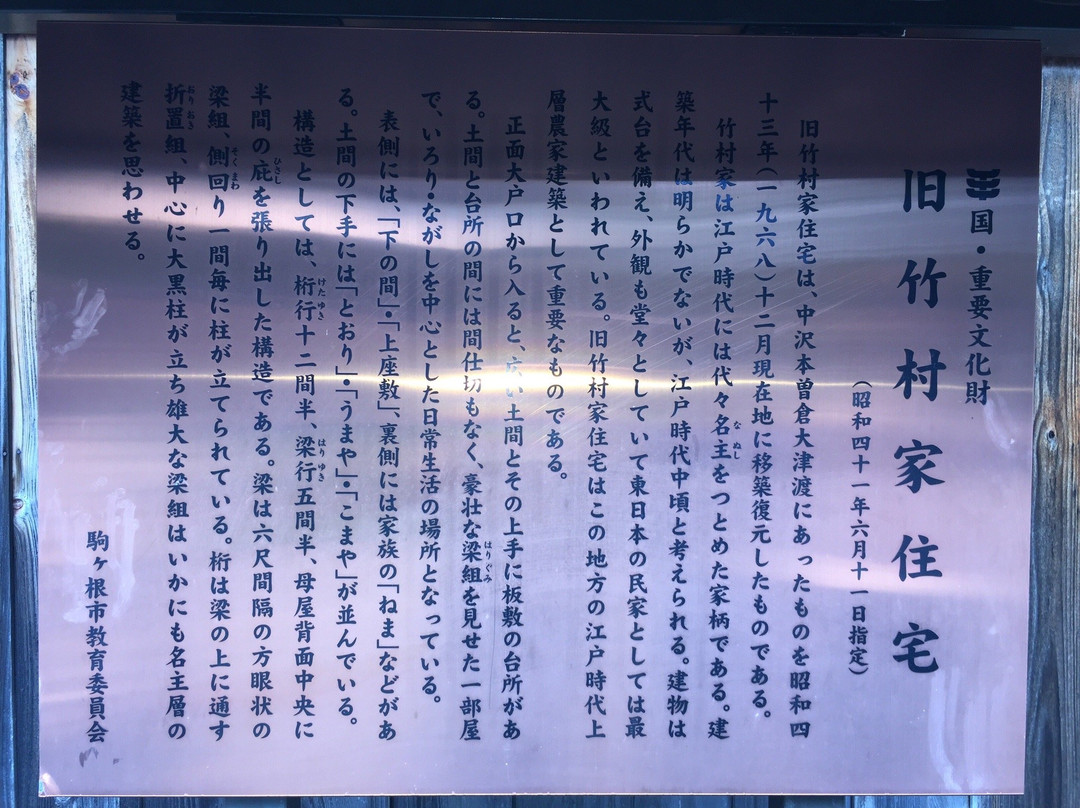 国・重要文化財
旧竹村家住宅
（昭和四十一年六月十一日指定）
旧竹村家住宅は、中沢本曽倉大津渡にあったものを昭和四
十三年（一九六八）十二月現在地に移築復元したものである。
竹村家は江戸時代には代々名主をつとめた家柄である。建
築年代は明らかでないが、江戸時代中頃と考えられる。建物は
式台を備え、外観も堂々としていて東日本の民家としては最
大級といわれている。旧竹村家住宅はこの地方の江戸時代上
層農家建築として重要なものである。
正面大戸口から入ると、広い土間とその上手に板敷の台所があ
る。土間と台所の間には間仕切もなく、豪壮な梁組を見せた一部屋
で、いろり・ながしを中心とした日常生活の場所となっている。
表側には、「下の間」・「上座敷」、裏側には家族の「ねま」などがあ
る。土間の下手には「とおり」・「うまや」・「こまや」が並んでいる。
構造としては、桁行十二間半、梁行五間半、母屋背面中央に
半間の庇を張り出した構造である。梁は六尺間隔の方眼状の
梁組、側回り一間毎に柱が立てられている。桁は梁の上に通す
折置組、中心に大黒柱が立ち雄大な梁組はいかにも名主層の
建築を思わせる。
駒ヶ根市教育委員会